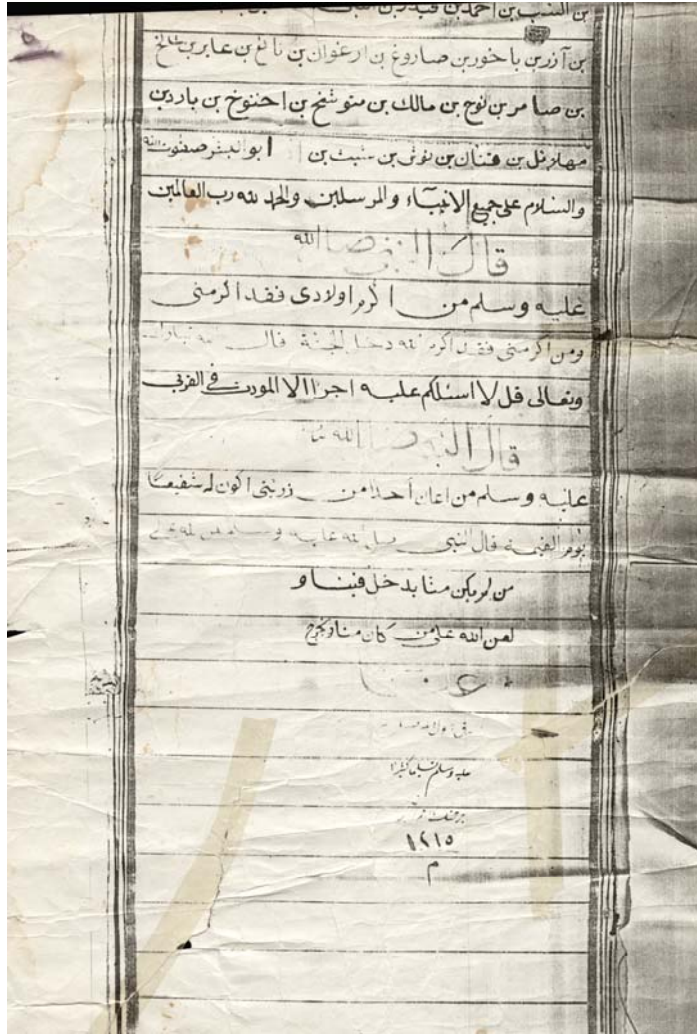 بن آزر بن باحور بن صاروغ بن ارغوان بن فالغ بن عابر بن شالخ
بن صامر بن نوح بن مالك بن متوشخ بن احنوخ بن يارد بن
مهلائل بن قنان بن نوش بن شيث بن ابو البشر صفوت الله
والسلام على جميع الانبياء والمرسلين والحمد لله رب العالمين
قال النبى صلا الله
عليه وسلم من اكرم اولادى فقد اكرمنى
ومن اكرمنى فقد اكرم الله دخل الجنة قال الله تبارك
وتعالى قل لا اسئلكم عليه اجرا الا المودت فى القربى
قال النبى صلا الله
عليه وسلم من اعان احدا من ذريتى اكون له شفيعا
يوم القيمة قال النبى صلى الله عليه وسلم لعن الله على
من لم يكن منا يدخل فينا و
لعن الله على من كان منا ويخرج
عنا
عليه وسلم تسليما كثيرا
١٢١٥
م